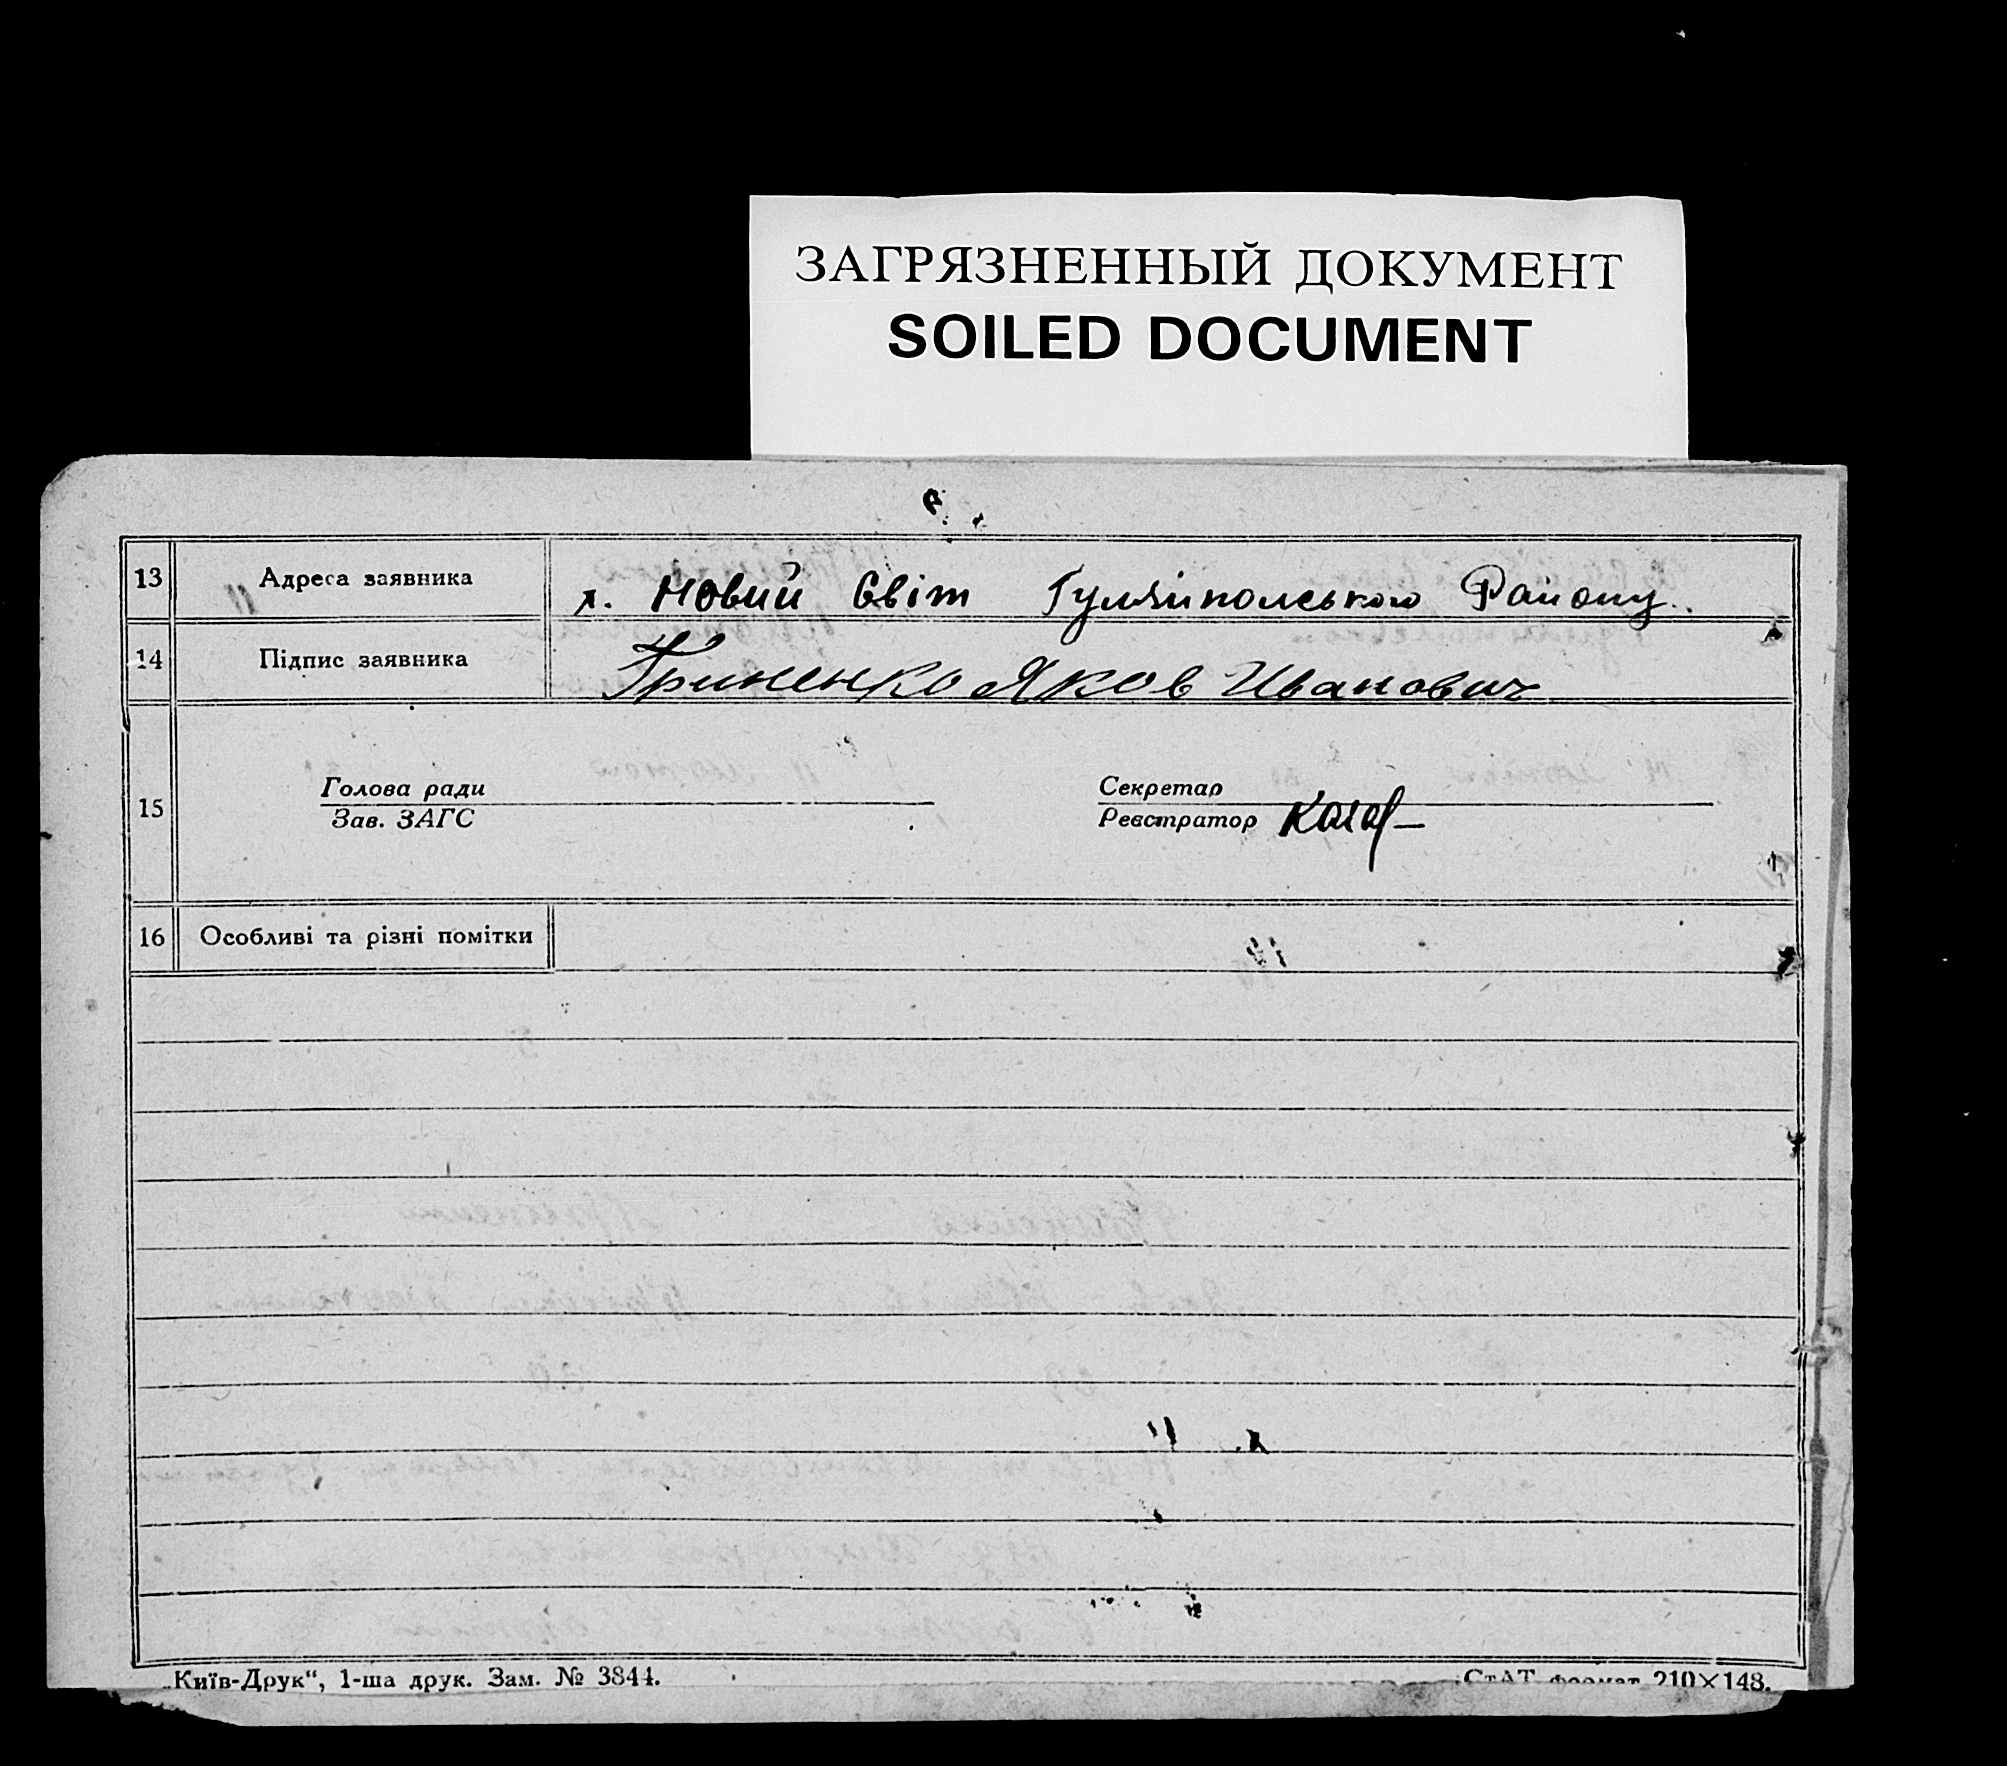 ЗАГРЯЗНЕННЫЙ ДОКУМЕНТ
SOILED DOCUMENT
13 Адреса заявника х. Новий Світ Гуляйпольського Району.
14 Підпис заявника Гриненко Яков Иванович
Голова ради Секретар
15
Зав. ЗАГС Реєстратор
16 Особливі та різні помітки
„Київ-Друк“, 1-ша друк. Зам. № 3844. СтАТ формат 210×148.